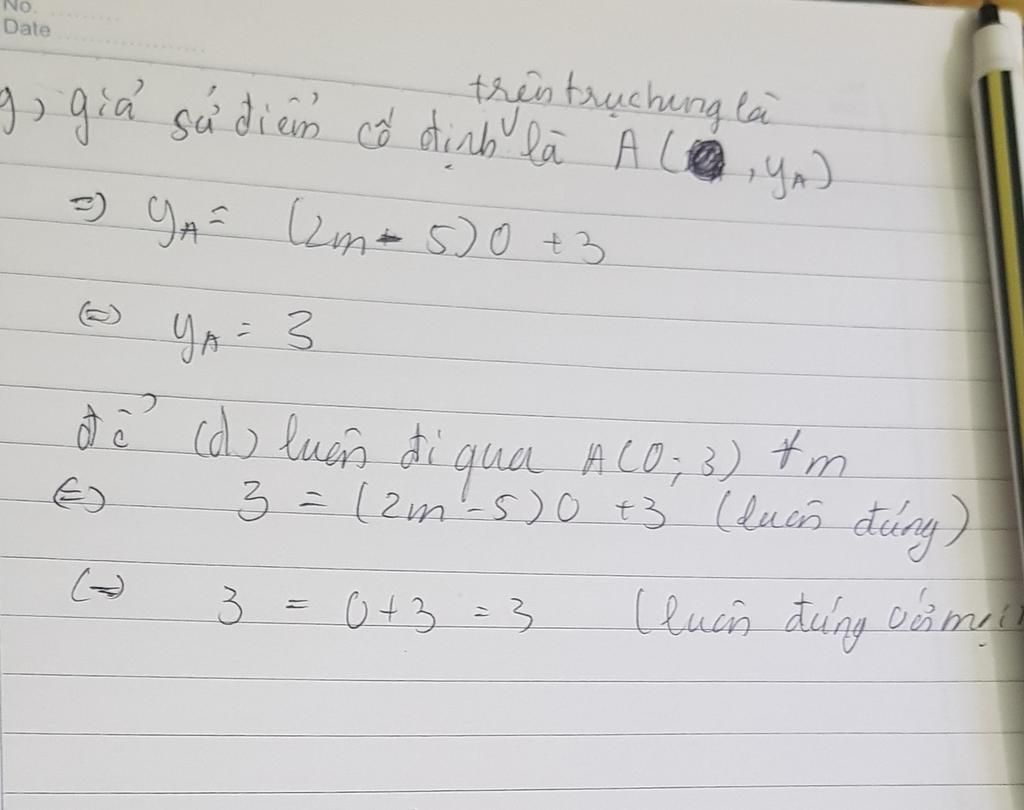 No.
Date
g, giả sử điểm cố định trên trục hung là là A( , yA)
=> yA = (2m - 5)0 + 3
<=> yA = 3
để (d) luôn đi qua A(0; 3) ∀m
<=> 3 = (2m - 5)0 + 3 (luôn đúng)
<=> 3 = 0 + 3 = 3 (luôn đúng với mọi